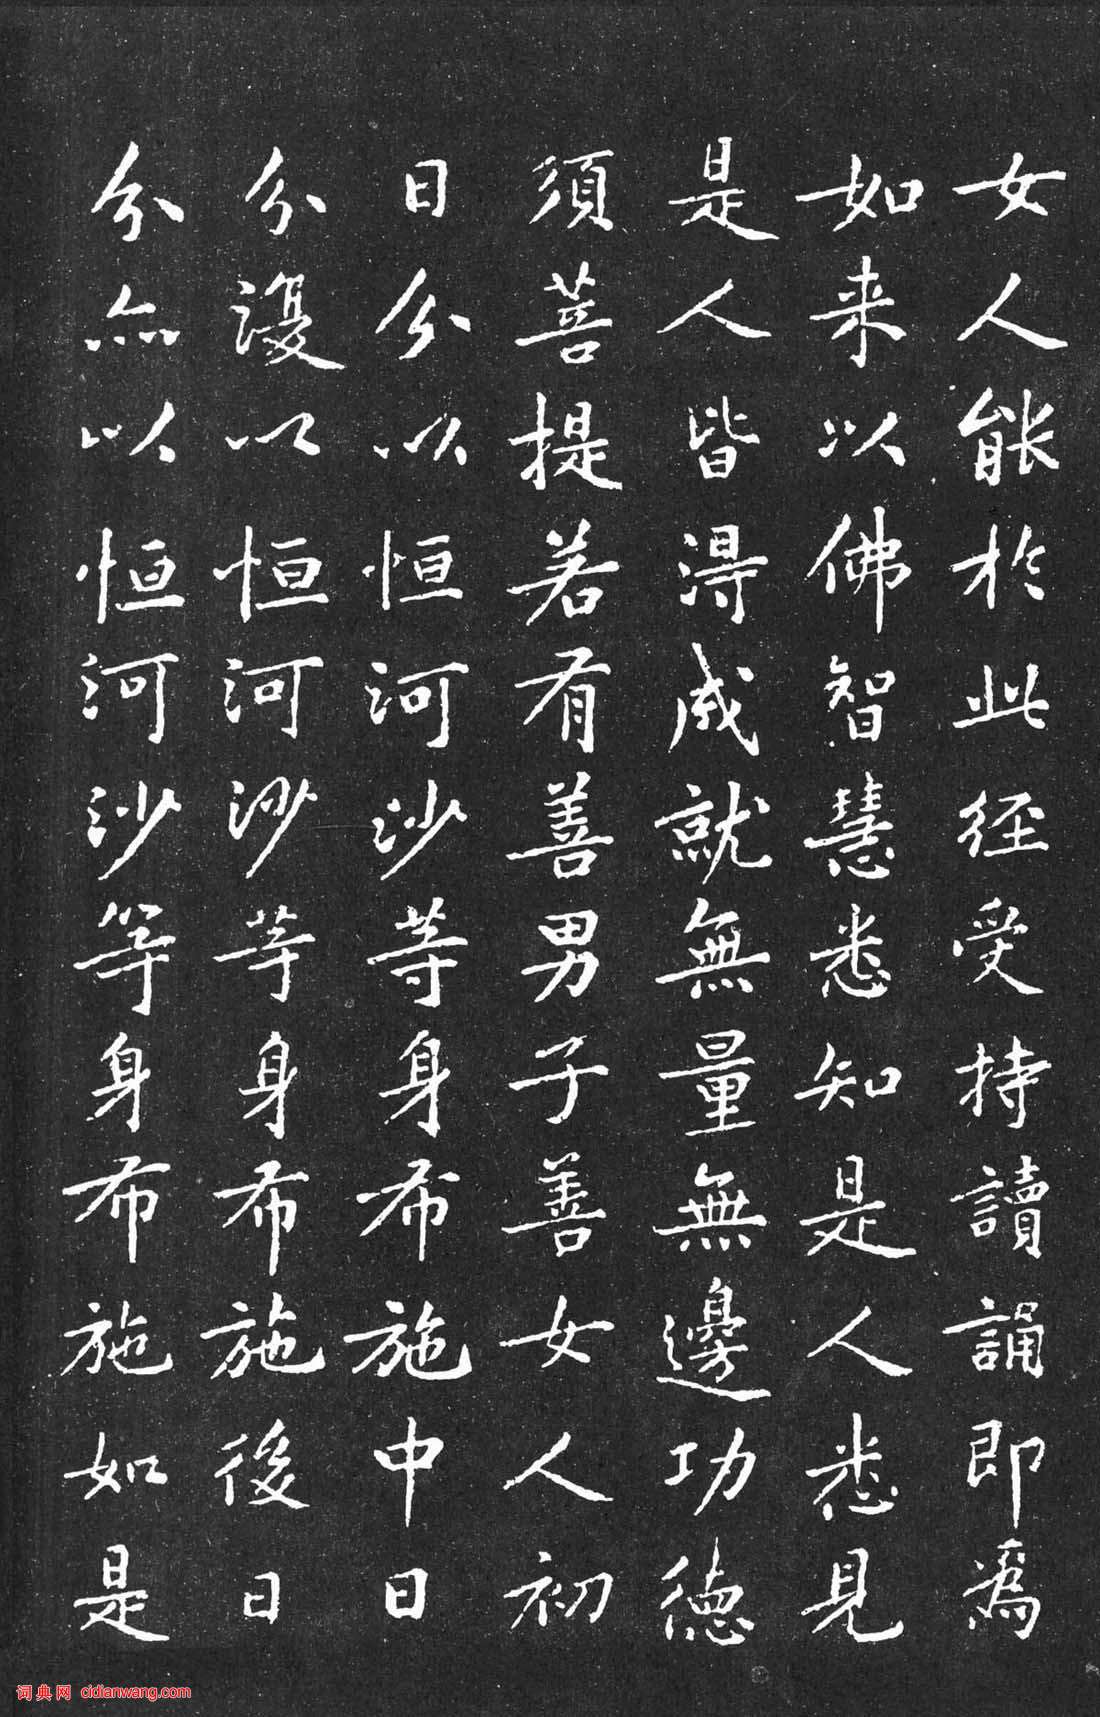 女人能於此径受持讀誦即為
如来以佛智慧悉知是人悉見
是人皆得成就無量無邊功徳
須菩提若有善男子善女人初
日分以恒河沙等身布施中日
分復以恒河沙等身布施後日
分亦以恒河沙等身布施如是
词典网 cidianwang.com